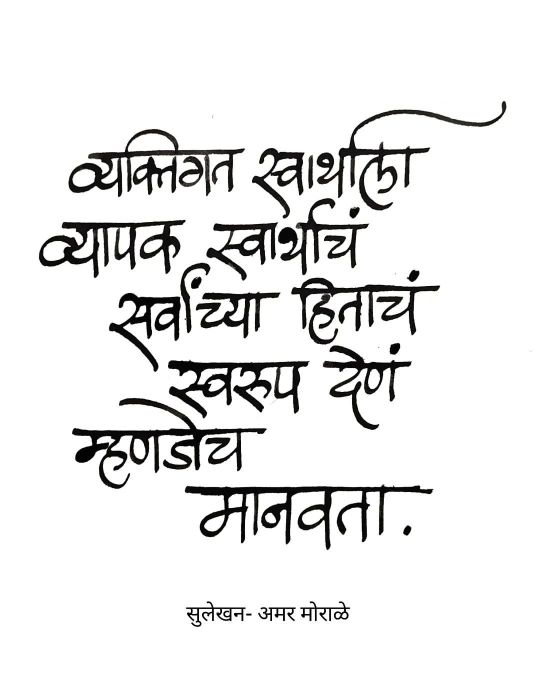 व्यक्तिगत स्वार्थाला
व्यापक स्वार्थाचं
सर्वांच्या हिताचं
स्वरुप देणं
म्हणजेच
मानवता.
सुलेखन- अमर मोराळे